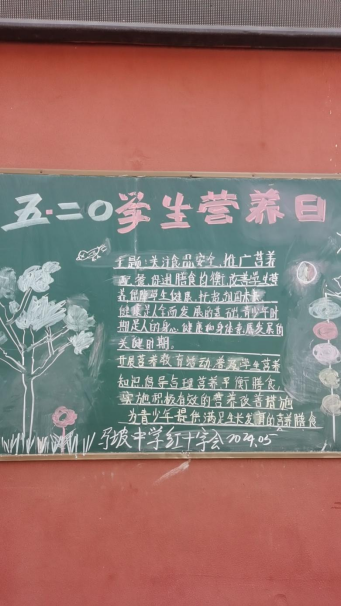 五·二〇学生营养日
主题:关注食品安全,推广营养
配餐,促进膳食均衡,改善学生营
养,保障学生健康,托起祖国未来
健康是人全面发展的基础,青少年时
期是人的身心健康和身体素质发展的
关键时期。
开展营养教育活动,普及学生营养
知识倡导合理营养平衡膳食,
实施积极有效的营养改善措施
为青少年提供满足生长发育的营养膳食
中学红十字会2024.05